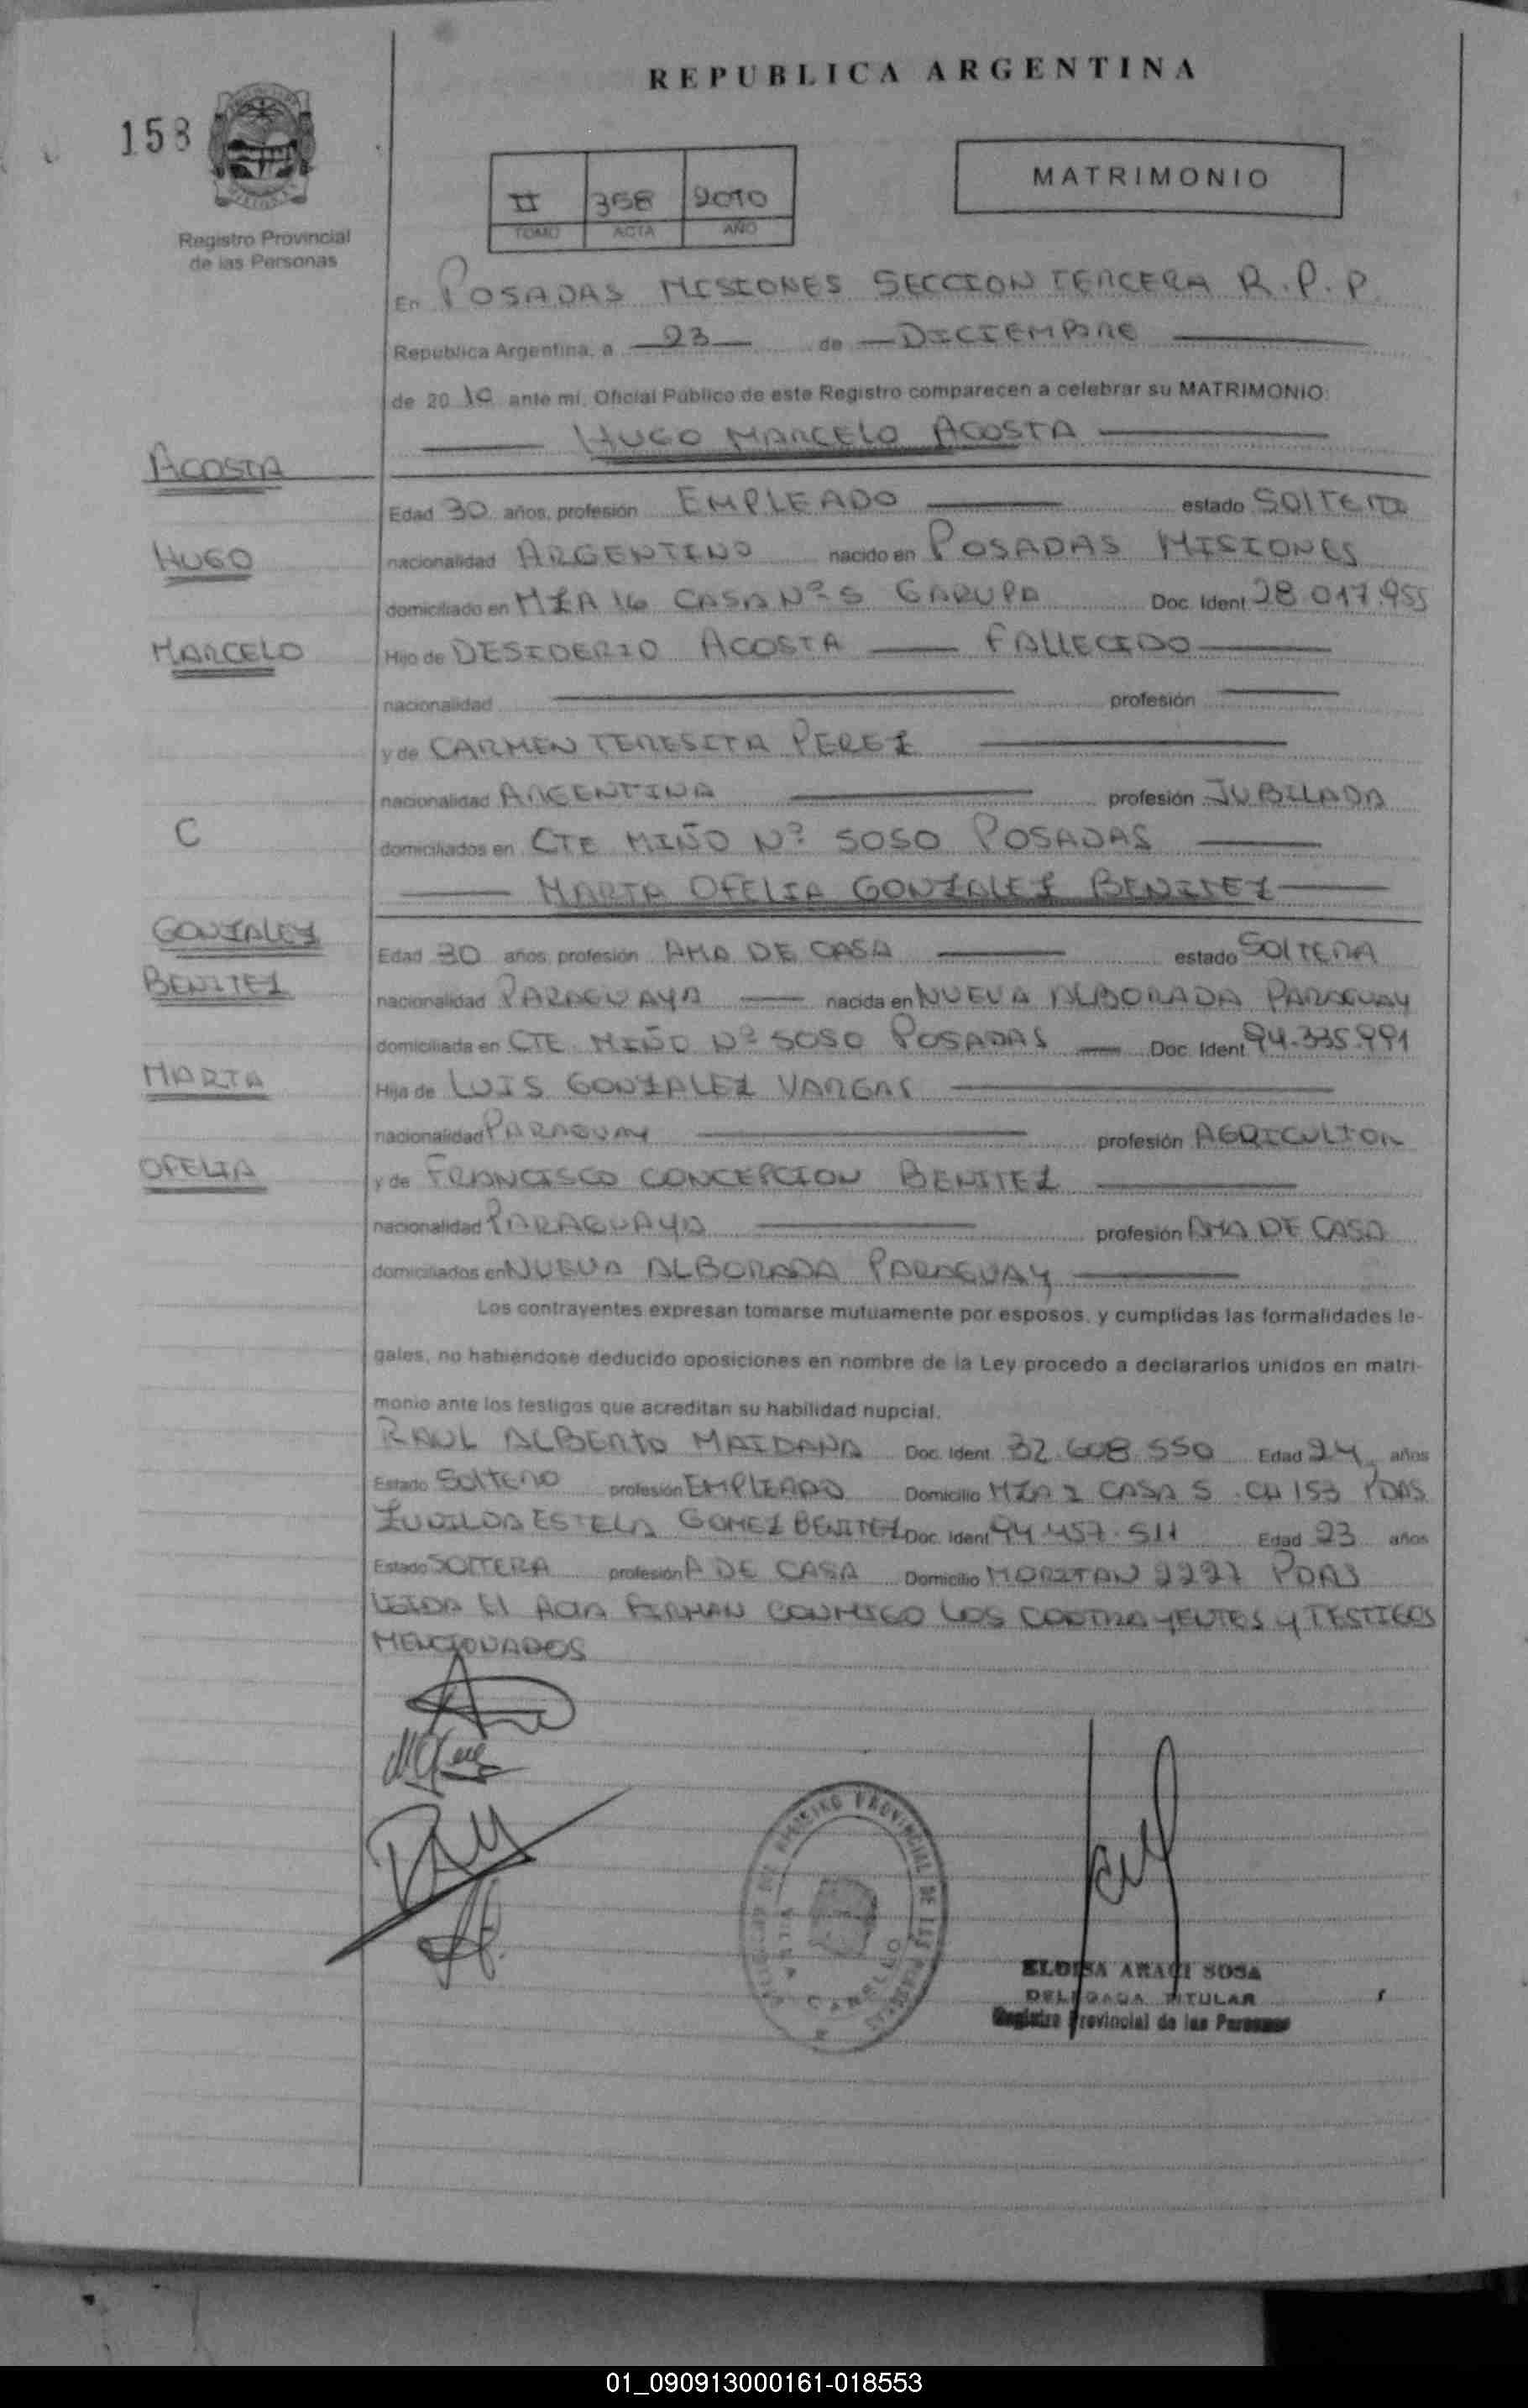 REPUBLICA ARGENTINA
158
MATRIMONIO
II 358 2010
TOMO ACTA AÑO
Registro Provincial
de las Personas
En POSADAS MISIONES SECCION TERCERA R.P.P.
Republica Argentina, a 23 de DICIEMBRE
de 2010 ante mí, Oficial Público de este Registro comparecen a celebrar su MATRIMONIO:
HUGO MARCELO ACOSTA
ACOSTA
Edad 30 años, profesión EMPLEADO estado SOLTERO
HUGO
nacionalidad ARGENTINO nacido en POSADAS MISIONES
domiciliado en MZA 16 CASA Nº 5 GARUPA Doc. Ident. 28.017.955
MARCELO
Hijo de DESIDERIO ACOSTA FALLECIDO
nacionalidad profesión
y de CARMEN TERESITA PEREZ
nacionalidad ARGENTINA profesión JUBILADA
C
domiciliados en CTE MIÑO Nº 5050 POSADAS
MARTA OFELIA GONZALEZ BENITEZ
GONZALEZ
Edad 30 años, profesión AMA DE CASA estado SOLTERA
BENITEZ
nacionalidad PARAGUAYA nacida en NUEVA ALBORADA PARAGUAY
domiciliada en CTE MIÑO Nº 5050 POSADAS Doc. Ident. 94.335.991
MARTA
Hija de LUIS GONZALEZ VARGAS
nacionalidad PARAGUAY profesión AGRICULTOR
OFELIA
y de FRANCISCO CONCEPCION BENITEZ
nacionalidad PARAGUAYA profesión AMA DE CASA
domiciliados en NUEVA ALBORADA PARAGUAY
Los contrayentes expresan tomarse mutuamente por esposos, y cumplidas las formalidades le-
gales, no habiéndose deducido oposiciones en nombre de la Ley procedo a declararlos unidos en matri-
monio ante los testigos que acreditan su habilidad nupcial.
RAUL ALBERTO MAIDANA Doc. Ident. 32.608.550 Edad 24 años
Estado SOLTERO profesión EMPLEADO Domicilio MZA 2 CASA 5 CH 153 PDAS
ZUNILDA ESTELA GOMEZ BENITEZ Doc. Ident. 94.457.511 Edad 23 años
Estado SOLTERA profesión A DE CASA Domicilio MORITAN 2227 PDAS
LEIDA El ACTA FIRMAN CONMIGO LOS CONTRAYENTES Y TESTIGOS
MENCIONADOS
REGISTRO PROVINCIAL DE LAS PERSONAS
VILLA CABELLO
ELOISA ARACI SOSA
DELEGADA TITULAR
Registro Provincial de las Personas
01_090913000161-018553